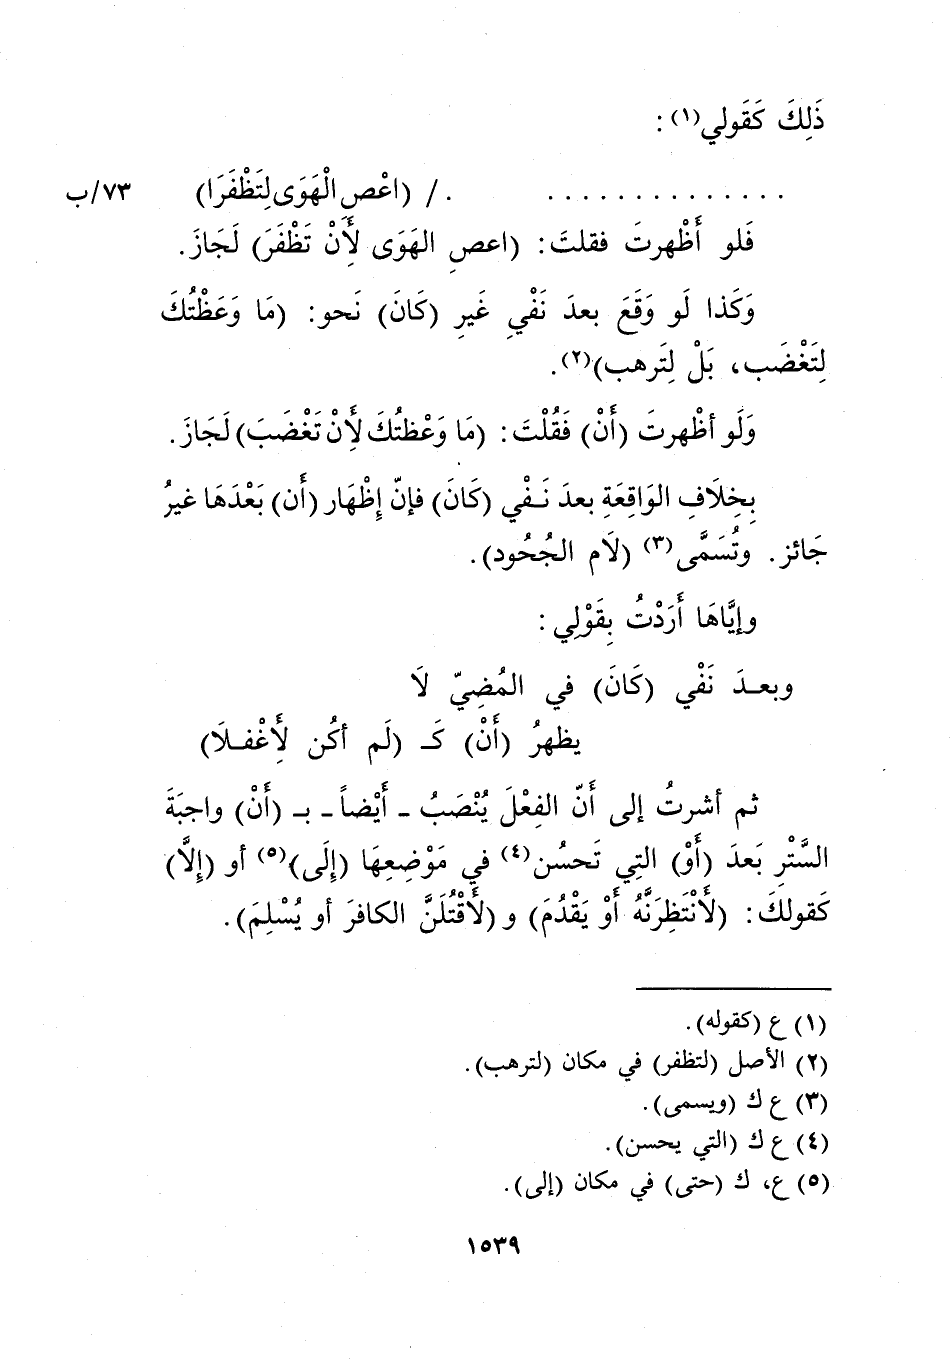 ذَلِكَ كَقَولي(١) :
. . . . . . . . . . . . . . . / (اعْصِ الْهَوَى لِتَظْفَرَا) ٧٣/ب
فَلو أَظْهرتَ فقلتَ: (اعصِ الهَوَى لِأَنْ تَظْفَرَ) لَجَازَ.
وَكَذا لَو وَقَعَ بعدَ نَفْيِ غَيرِ (كَانَ) نَحو: (مَا وَعَظْتُكَ
لِتَغْضَب، بَلْ لِتَرهب)(٢).
وَلَو أظْهرتَ (أَنْ) فَقُلْتَ: (مَا وَعْظتُكَ لِأَنْ تَغْضَبَ) لَجَازَ.
بِخِلَافِ الوَاقِعَةِ بعدَ نَـفْي (كَانَ) فإنّ إِظْهَار (أَن) بَعْدَهَا غيرُ
جَائز. وتُسَمَّى(٣) (لَام الجُحُود).
وإيَّاهَا أَرَدْتُ بِقَوْلِي :
وبعـدَ نَفْي (كَانَ) في المُضِيّ لَا
يظهرُ (أَنْ) كَـ (لَم أكُن لِأَغْفـلَا)
ثم أشرتُ إلى أَنّ الفِعْلَ يُنْصَبُ - أَيْضاً - بـ (أَنْ) واجبَةَ
السَّتْرِ بَعدَ (أَوْ) التِي تَحسُن(٤) في مَوْضِعِهَا (إِلَى)(٥) أو (إِلَّا)
كَقولكَ: (لَأَنْتَظِرَنَّهُ أَوْ يَقْدُمَ) و (لَأَقْتُلَنَّ الكافرَ أو يُسْلِمَ).
(١) ع (كقوله).
(٢) الأصل (لتظفر) في مكان (لترهب).
(٣) ع ك (ويسمى).
(٤) ع ك (التي يحسن).
(٥) ع، ك (حتى) في مكان (إلى).
١٥٣٩